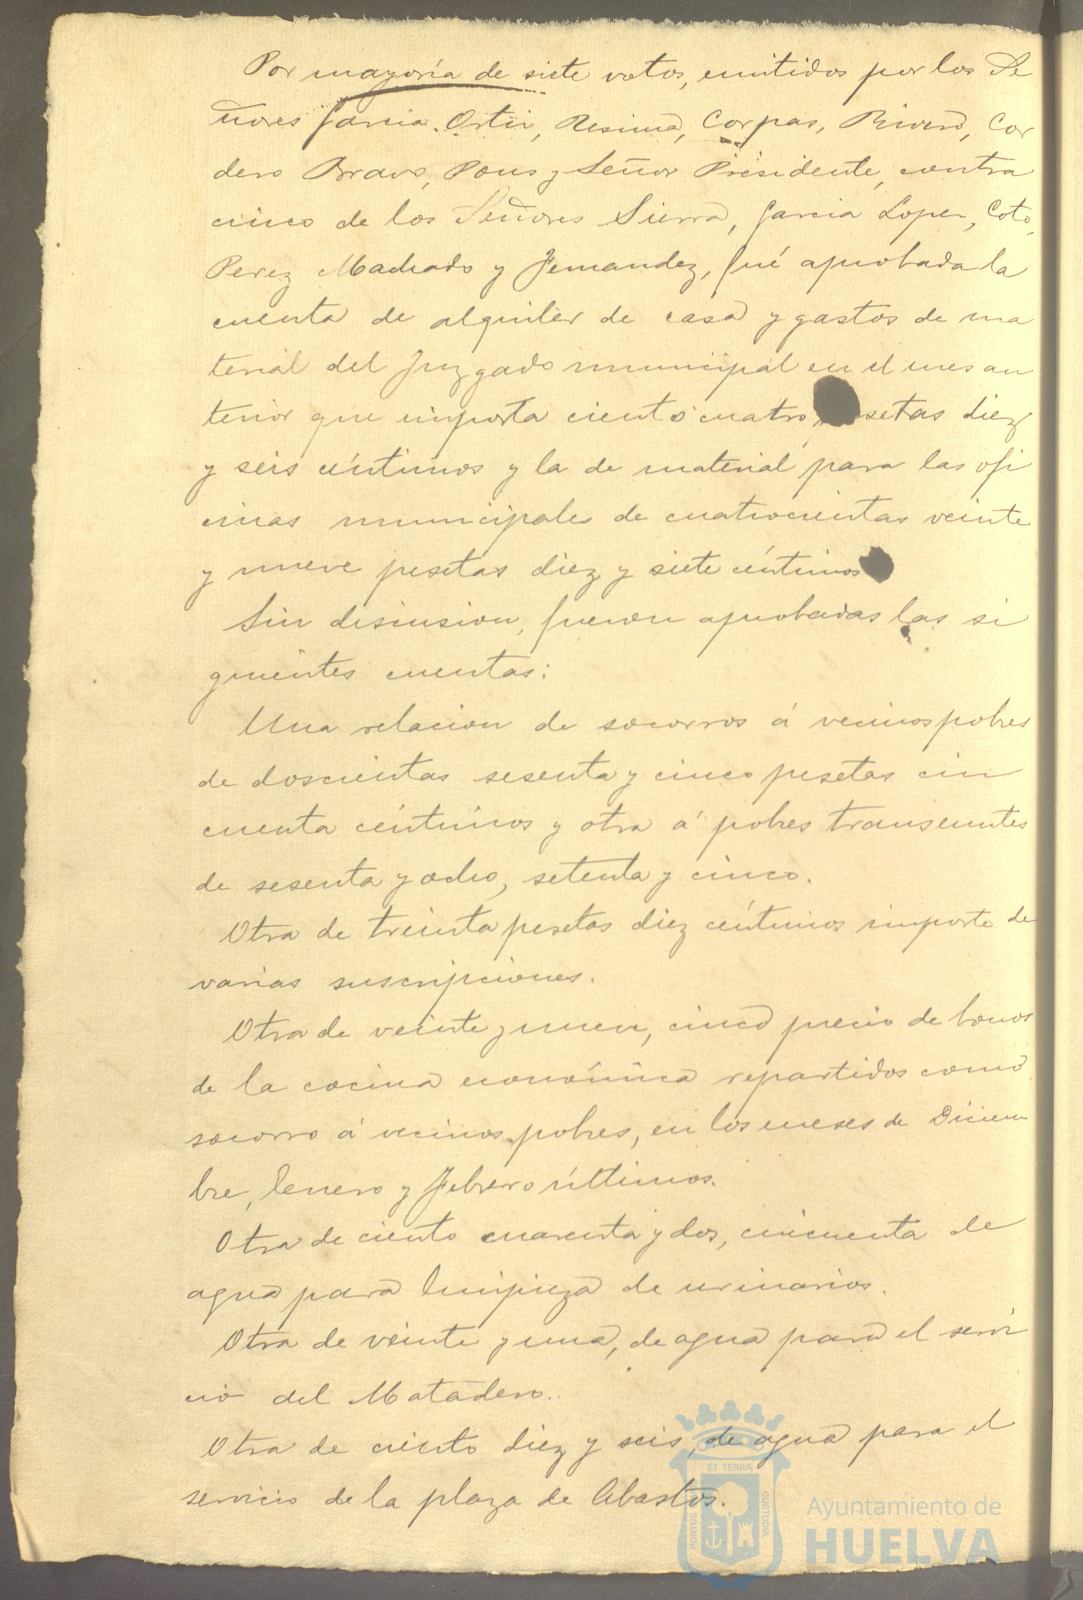 Por mayoría de siete votos, emitidos por los Se
ñores Garcia Ortiz, Resima, Corpas, Rivero, Cor
dero Bravo, Pons y Señor Presidente, contra
cinco de los Señores Sierra, Garcia Lopez, Coto,
Perez Machado y Fernandez, fué aprobada la
cuenta de alquiler de casa y gastos de ma
terial del Juzgado municipal en el mes an
terior que importa ciento cuatro setas diez
y seis céntimos y la de material para las ofi
cinas municipales de cuatrocientas veinte
y nueve pesetas diez y siete céntimos
Sin discusion, fueron aprobadas las si
guientes cuentas:
Una relacion de socorros á vecinos pobres
de doscientas sesenta y cinco pesetas cin
cuenta céntimos y otra á pobres transeuntes
de sesenta y ocho, setenta y cinco.
Otra de treinta pesetas diez céntimos importe de
varias suscripciones.
Otra de veinte y nueve, cinco precio de bonos
de la cocina económica repartidos como
socorro á vecinos pobres, en los meses de Diciem
bre, Enero y Febrero últimos.
Otra de ciento cuarenta y dos, cincuenta de
agua para limpieza de urinarios.
Otra de veinte y una, de agua para el servi
cio del Matadero.
Otra de ciento diez y seis, de agua para el
servicio de la plaza de Abastos.
ET TERRÆ
PORTUS
CUSTODIA
Ayuntamiento de
HUELVA